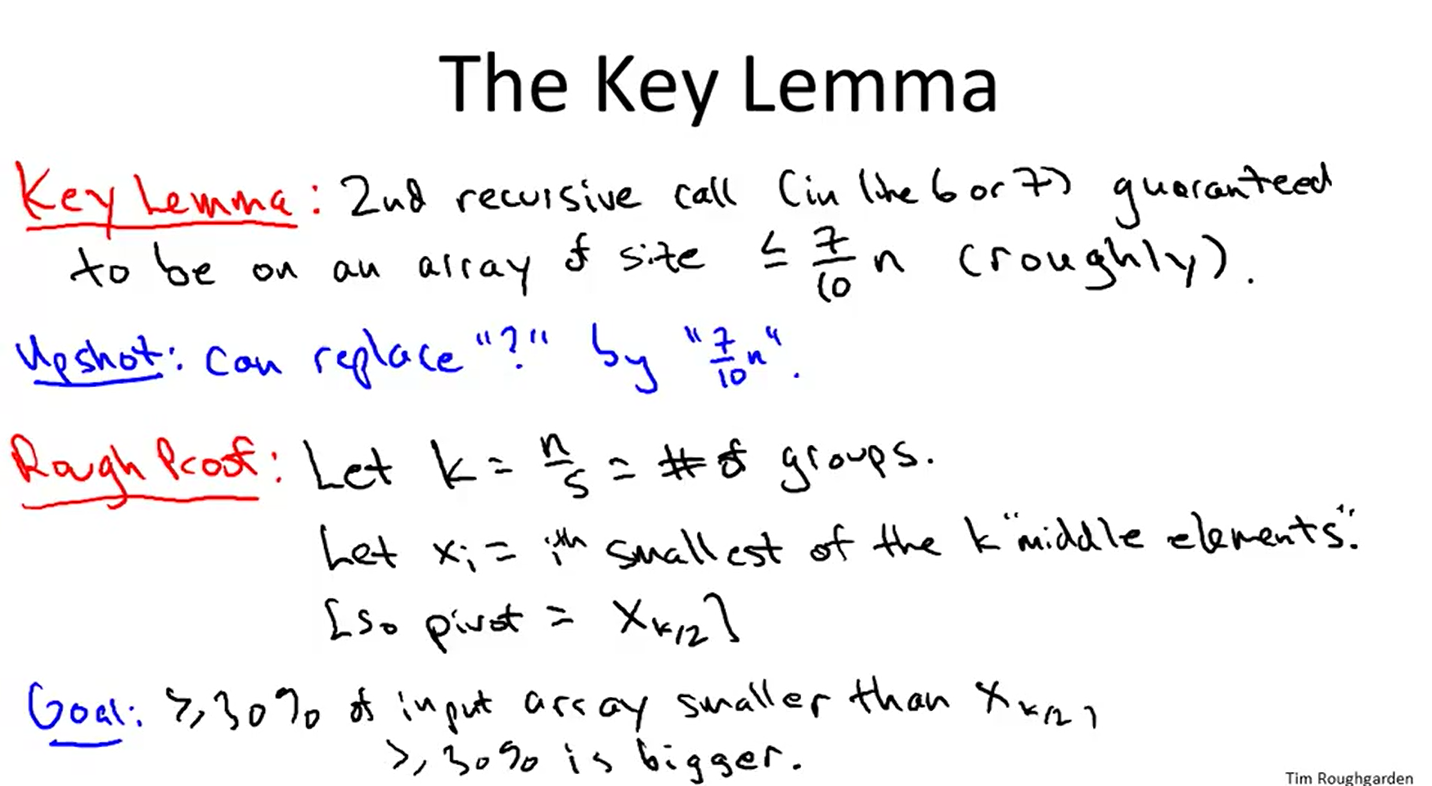 The Key Lemma
Key Lemma: 2nd recursive call (in line 6 or 7) guaranteed
to be on an array of size ≤ 7/10 n (roughly).
Upshot: can replace "?" by "7/10 n".
Rough Proof: Let k = n/5 = # of groups.
Let xi = ith smallest of the k "middle elements".
[So pivot = xk/2]
Goal: ≥ 30% of input array smaller than xk/2,
≥ 30% is bigger.
Tim Roughgarden